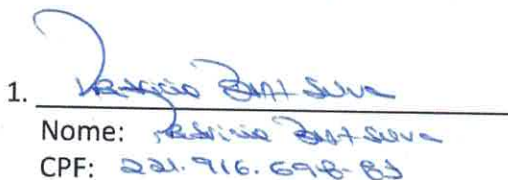 1. Patricia Bant Silva
Nome: Patricia Bant Silva
CPF: 221.916.698-83